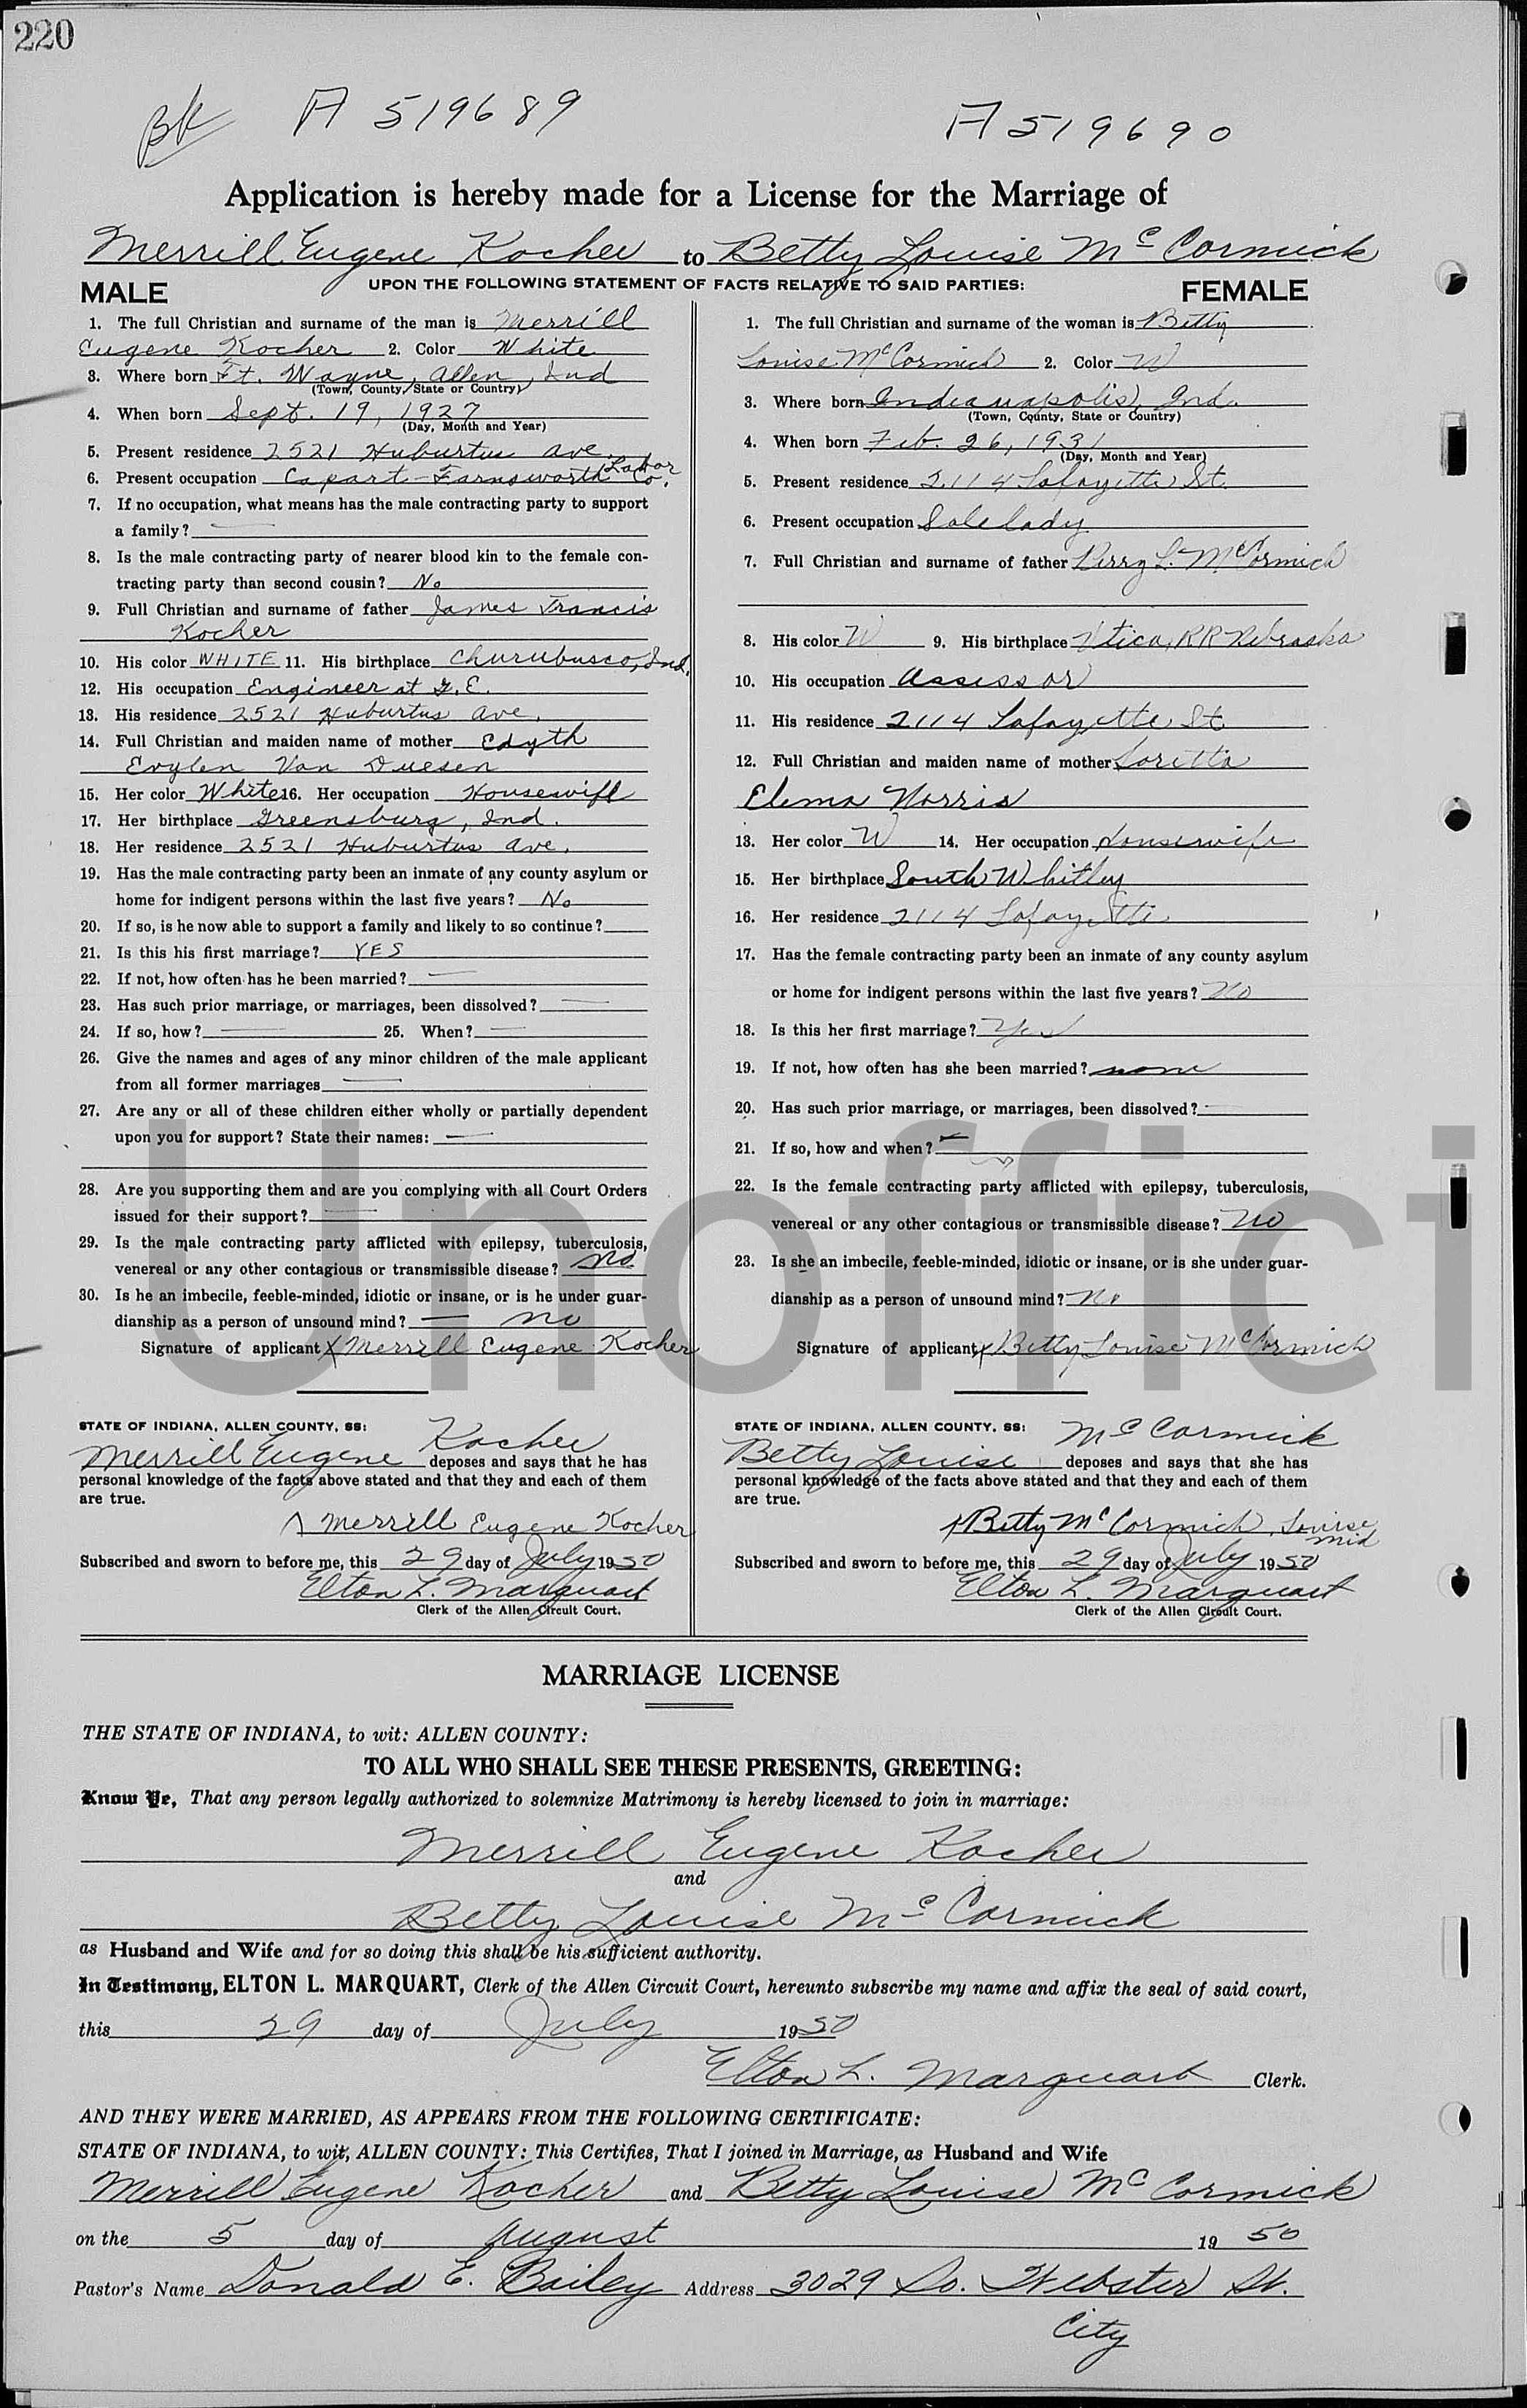 220
BK A 519689 A 519690
Application is hereby made for a License for the Marriage of
Merrill Eugene Kocher to Betty Louise McCormick
UPON THE FOLLOWING STATEMENT OF FACTS RELATIVE TO SAID PARTIES:
MALE
1. The full Christian and surname of the man is Merrill
Eugene Kocher 2. Color White
3. Where born Ft. Wayne, Allen, Ind
(Town, County, State or Country)
4. When born Sept. 19, 1927
(Day, Month and Year)
5. Present residence 2521 Huburtus Ave.
6. Present occupation Capart-Farnsworth Co. Labor
7. If no occupation, what means has the male contracting party to support
a family? —
8. Is the male contracting party of nearer blood kin to the female con-
tracting party than second cousin? No
9. Full Christian and surname of father James Francis
Kocher
10. His color WHITE 11. His birthplace Churubusco, Ind.
12. His occupation Engineer at G.E.
13. His residence 2521 Huburtus Ave.
14. Full Christian and maiden name of mother Edyth
Evylen Van Duesen
15. Her color White 16. Her occupation Housewife
17. Her birthplace Greensburg, Ind.
18. Her residence 2521 Huburtus Ave.
19. Has the male contracting party been an inmate of any county asylum or
home for indigent persons within the last five years? No
20. If so, is he now able to support a family and likely to so continue?
21. Is this his first marriage? YES
22. If not, how often has he been married? —
23. Has such prior marriage, or marriages, been dissolved? —
24. If so, how? — 25. When? —
26. Give the names and ages of any minor children of the male applicant
from all former marriages —
27. Are any or all of these children either wholly or partially dependent
upon you for support? State their names: —
28. Are you supporting them and are you complying with all Court Orders
issued for their support? —
29. Is the male contracting party afflicted with epilepsy, tuberculosis,
venereal or any other contagious or transmissible disease? no
30. Is he an imbecile, feeble-minded, idiotic or insane, or is he under guar-
dianship as a person of unsound mind? — no
Signature of applicant X Merrill Eugene Kocher
STATE OF INDIANA, ALLEN COUNTY, SS:
Merrill Eugene Kocher deposes and says that he has
personal knowledge of the facts above stated and that they and each of them
are true.
X Merrill Eugene Kocher
Subscribed and sworn to before me, this 29 day of July 1950
Elton L. Marquart
Clerk of the Allen Circuit Court.
FEMALE
1. The full Christian and surname of the woman is Betty
Louise McCormick 2. Color W
3. Where born Indianapolis, Ind.
(Town, County, State or Country)
4. When born Feb. 26, 1931
(Day, Month and Year)
5. Present residence 2114 Lafayette St.
6. Present occupation Salelady
7. Full Christian and surname of father Perry L. McCormick
8. His color W 9. His birthplace Utica, RR Nebraska
10. His occupation Assessor
11. His residence 2114 Lafayette St
12. Full Christian and maiden name of mother Loretta
Elema Norris
13. Her color W 14. Her occupation Housewife
15. Her birthplace South Whitley
16. Her residence 2114 Lafayette
17. Has the female contracting party been an inmate of any county asylum
or home for indigent persons within the last five years? No
18. Is this her first marriage? Yes
19. If not, how often has she been married? none
20. Has such prior marriage, or marriages, been dissolved? —
21. If so, how and when? —
22. Is the female contracting party afflicted with epilepsy, tuberculosis,
venereal or any other contagious or transmissible disease? No
23. Is she an imbecile, feeble-minded, idiotic or insane, or is she under guar-
dianship as a person of unsound mind? No
Signature of applicant X Betty Louise McCormick
STATE OF INDIANA, ALLEN COUNTY, SS:
Betty Louise McCormick deposes and says that she has
personal knowledge of the facts above stated and that they and each of them
are true.
X Betty McCormick, Louise mid
Subscribed and sworn to before me, this 29 day of July 1950
Elton L. Marquart
Clerk of the Allen Circuit Court.
Unoffici
MARRIAGE LICENSE
THE STATE OF INDIANA, to wit: ALLEN COUNTY:
TO ALL WHO SHALL SEE THESE PRESENTS, GREETING:
Know Ye, That any person legally authorized to solemnize Matrimony is hereby licensed to join in marriage:
Merrill Eugene Kocher
and
Betty Louise McCormick
as Husband and Wife and for so doing this shall be his sufficient authority.
In Testimony, ELTON L. MARQUART, Clerk of the Allen Circuit Court, hereunto subscribe my name and affix the seal of said court,
this 29 day of July 1950
Elton L. Marquart Clerk.
AND THEY WERE MARRIED, AS APPEARS FROM THE FOLLOWING CERTIFICATE:
STATE OF INDIANA, to wit, ALLEN COUNTY: This Certifies, That I joined in Marriage, as Husband and Wife
Merrill Eugene Kocher and Betty Louise McCormick
on the 5 day of August 1950
Pastor's Name Donald E. Bailey Address 3029 So. Webster St.
City